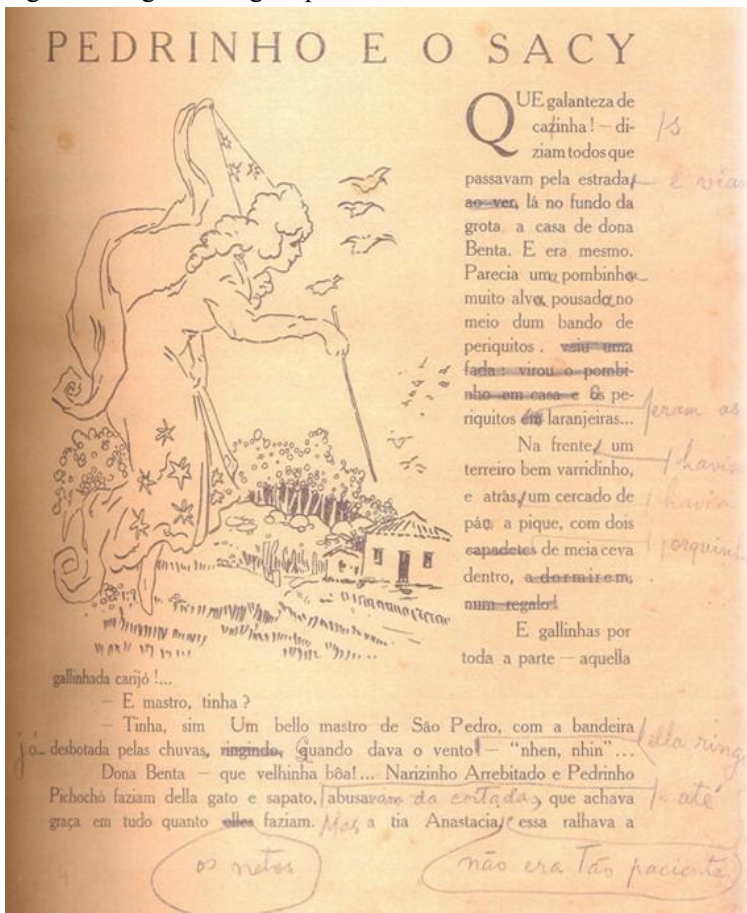 PEDRINHO E O SACY
QUE galanteza de
cazinha! — di- /s
ziam todos que
passavam pela estrada, e viam
ao ver, lá no fundo da
grota a casa de dona
Benta. E era mesmo.
Parecia uma pombinha
muito alva, pousada no
meio dum bando de
periquitos. veiu uma
fada: virou o pombi-
nho em casa e Os pe-
riquitos em laranjeiras... eram as
Na frente, um havia
terreiro bem varridinho,
e atrás, um cercado de havia
páu a pique, com dois
capadetes de meia ceva porquinh
dentro, a dormirem,
num regalo!
E gallinhas por
toda a parte — aquella
gallinhada carijó!...
— E mastro, tinha?
— Tinha, sim Um bello mastro de São Pedro, com a bandeira
já desbotada pelas chuvas, ringindo, Quando dava o vento! — “nhen, nhin”... elle ringi
Dona Benta — que velhinha bôa!... Narizinho Arrebitado e Pedrinho
Pichochó faziam della gato e sapato, abusavam da coitada, que achava até
graça em tudo quanto elles faziam. Mas a tia Anastacia, essa ralhava a
os netos não era tão paciente